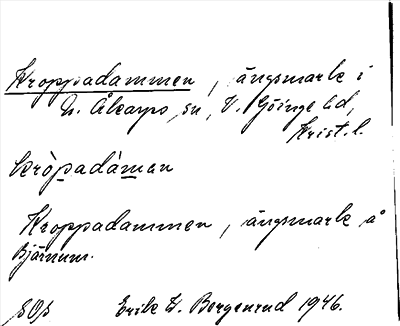 Kroppadammen, ängsmark i
N. Åkarps sn, V. Göinge hd,
Krist. l.
kròpadàman
Kroppadammen, ängsmark å
Bjärnum.
Erik W. Borgenrud 1946.